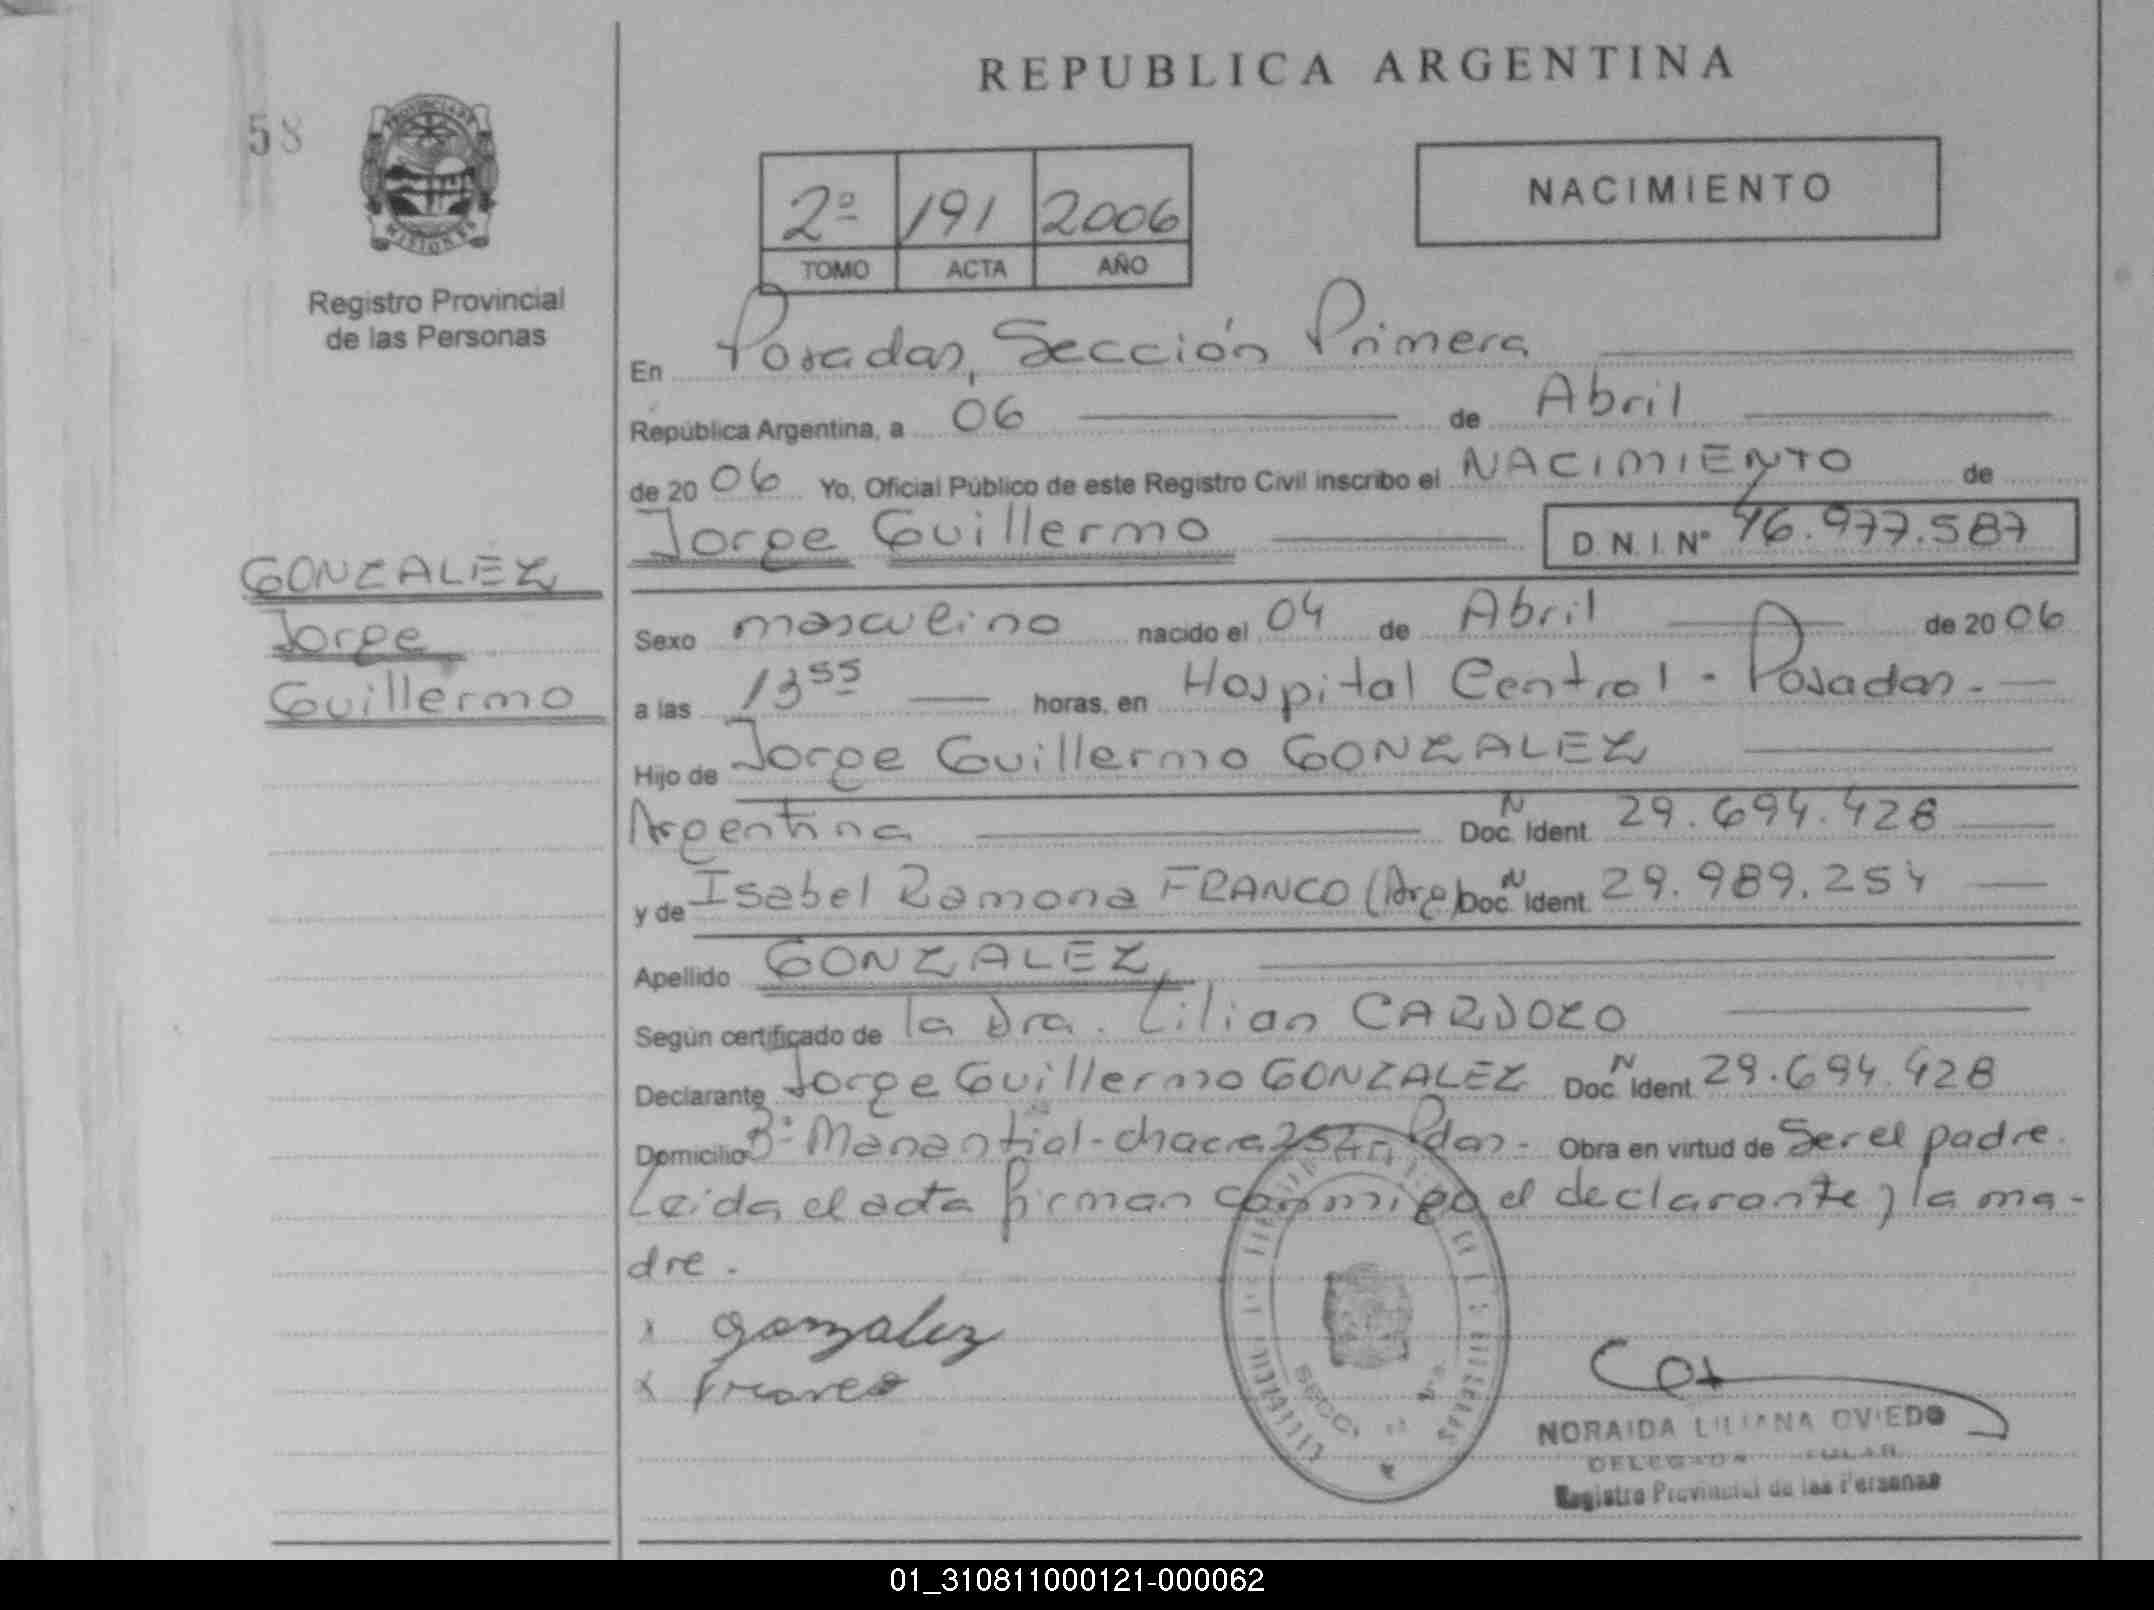 REPUBLICA ARGENTINA
58
PROVINCIA DE
MISIONES
Registro Provincial
de las Personas
2º 191 2006
TOMO ACTA AÑO
NACIMIENTO
En Posadas, Sección Primera
República Argentina, a 06 de Abril
de 2006 Yo, Oficial Público de este Registro Civil inscribo el NACIMIENTO de
Jorge Guillermo D.N.I. Nº 46.977.587
GONZALEZ
Jorge
Guillermo
Sexo masculino nacido el 04 de Abril de 2006
a las 13 55 horas, en Hospital Central - Posadas.
Hijo de Jorge Guillermo GONZALEZ
Argentina Doc. N Ident. 29.694.428
y de Isabel Ramona FRANCO (Arg) Doc. N Ident. 29.989.254
Apellido GONZALEZ
Según certificado de la Dra. Lilian CARDOZO
Declarante Jorge Guillermo GONZALEZ Doc. N Ident. 29.694.428
Domicilio Bº Manantial - chacra 254 - Pdas - Obra en virtud de Ser el padre.
Leida el acta firman conmigo el declarante y la ma-
dre.
x gonzalez
x franco
SECC. 1ra
NORAIDA LILIANA OVIEDO
DELEGADA TITULAR
Registro Provincial de las Personas
01_310811000121-000062